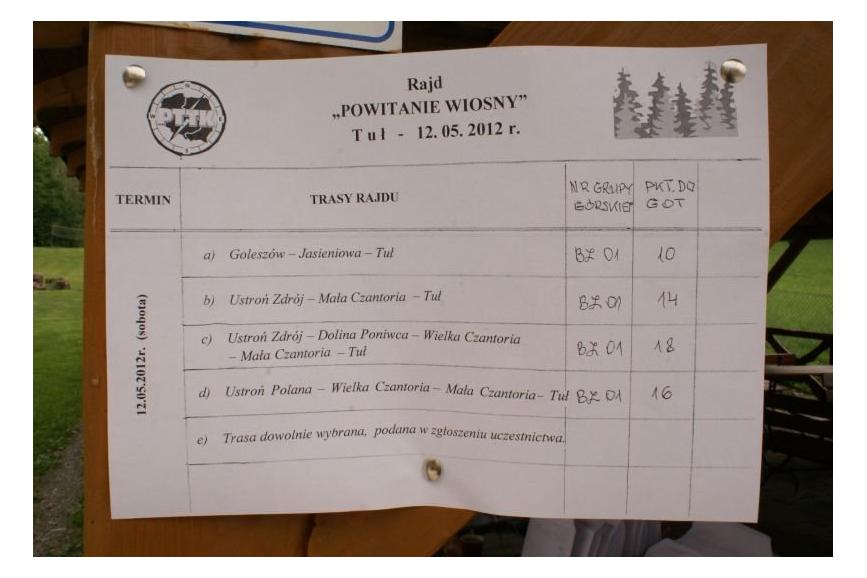 PTTK
Rajd
„POWITANIE WIOSNY”
Tuł - 12. 05. 2012 r.
TERMIN
TRASY RAJDU
NR GRUPY
GÓRSKIEJ
PKT. DO
GOT
12.05.2012r. (sobota)
a) Goleszów – Jasieniowa – Tuł
BZ 01
10
b) Ustroń Zdrój – Mała Czantoria – Tuł
BZ 01
14
c) Ustroń Zdrój – Dolina Poniwca – Wielka Czantoria
– Mała Czantoria – Tuł
BZ 01
18
d) Ustroń Polana – Wielka Czantoria – Mała Czantoria – Tuł
BZ 01
16
e) Trasa dowolnie wybrana, podana w zgłoszeniu uczestnictwa.